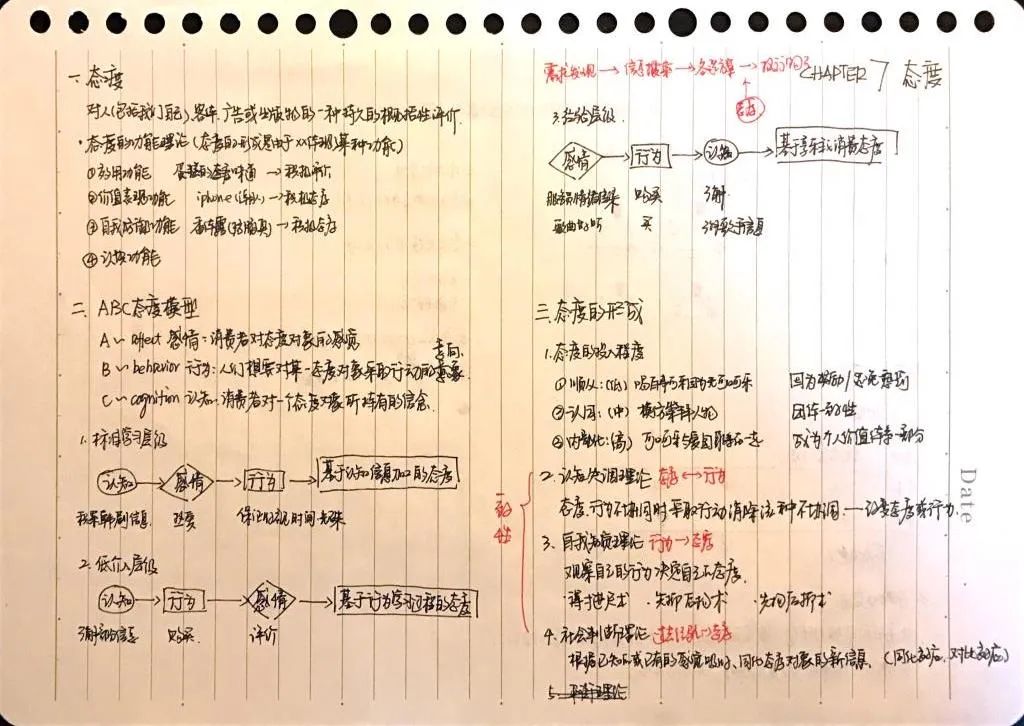 CHAPTER 7 态度
一、态度
对人(包括我们自己)、客体、广告或出版物的一种持久的概括性评价.
·态度的功能理论(态度的形成是由于xx体现某种功能)
①效用功能 蛋糕的美味味道 → 积极评价
②价值表现功能 iphone → 积极态度
③自我防御功能 → 积极态度
④认知功能
二、ABC态度模型
A ~ affect 感情:消费者对态度对象的感觉
B ~ behavior 行为:人们想要对某一态度对象采取行动的意向.
C ~ cognition 认知:消费者对一个态度对象所持有的信念.
1. 标准学习层级
认知 → 感情 → 行为 → 基于认知信息加工的态度
搜索韩剧信息 喜爱 保证 时间
2. 低介入层级
认知 → 行为 → 感情 → 基于行为学习过程的态度
信息 购买 评价
需求发现 → 信息搜索 → 备择方案 →
态度
3. 经验层级
感情 → 行为 → 认知 → 基于享乐主义消费态度
服务员 购买 了解
歌曲好听 买 了解歌手信息
三、态度的形成
1. 态度的投入程度
①顺从:(低) 喝百事可乐因为无可口可乐 因为奖励/避免惩罚
②认同:(中) 模仿榜样人物 团体一致性
③内部化:(高) 可口可乐 成为个人价值体系一部分
一致性
2. 认知失调理论 态度 ↔ 行为
态度、行为不协调时采取行动消除这种不协调 — 改变态度或行为
3. 自我知觉理论 行为 → 态度
观察自己的行为决定自己态度.
·得寸进尺术 ·先抑后扬术 ·先扬后抑术
4. 社会判断理论 态度
根据已知的或已有的感觉 同化态度对象的新信息. (同化效应,对比效应)
5. 平衡理论
Date